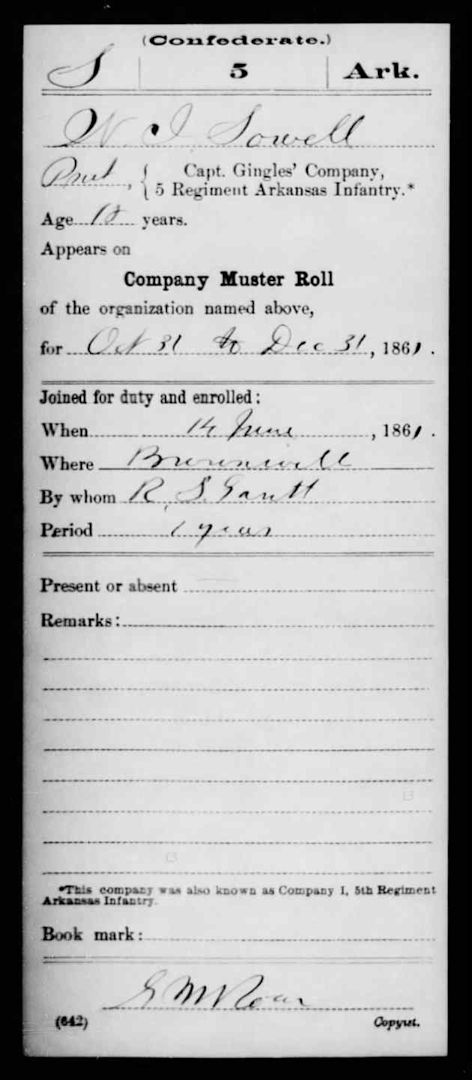 (Confederate.)
S | 5 | Ark.
W. J. Sowell
Pvt, { Capt. Gingles' Company,
5 Regiment Arkansas Infantry.*
Age 18 years.
Appears on
Company Muster Roll
of the organization named above,
for Oct 31 to Dec 31, 1861.
Joined for duty and enrolled:
When 14 June, 1861.
Where
By whom R. S. Gantt
Period 1 year
Present or absent
Remarks:
*This company was also known as Company I, 5th Regiment
Arkansas Infantry.
Book mark:
(642) Copyist.